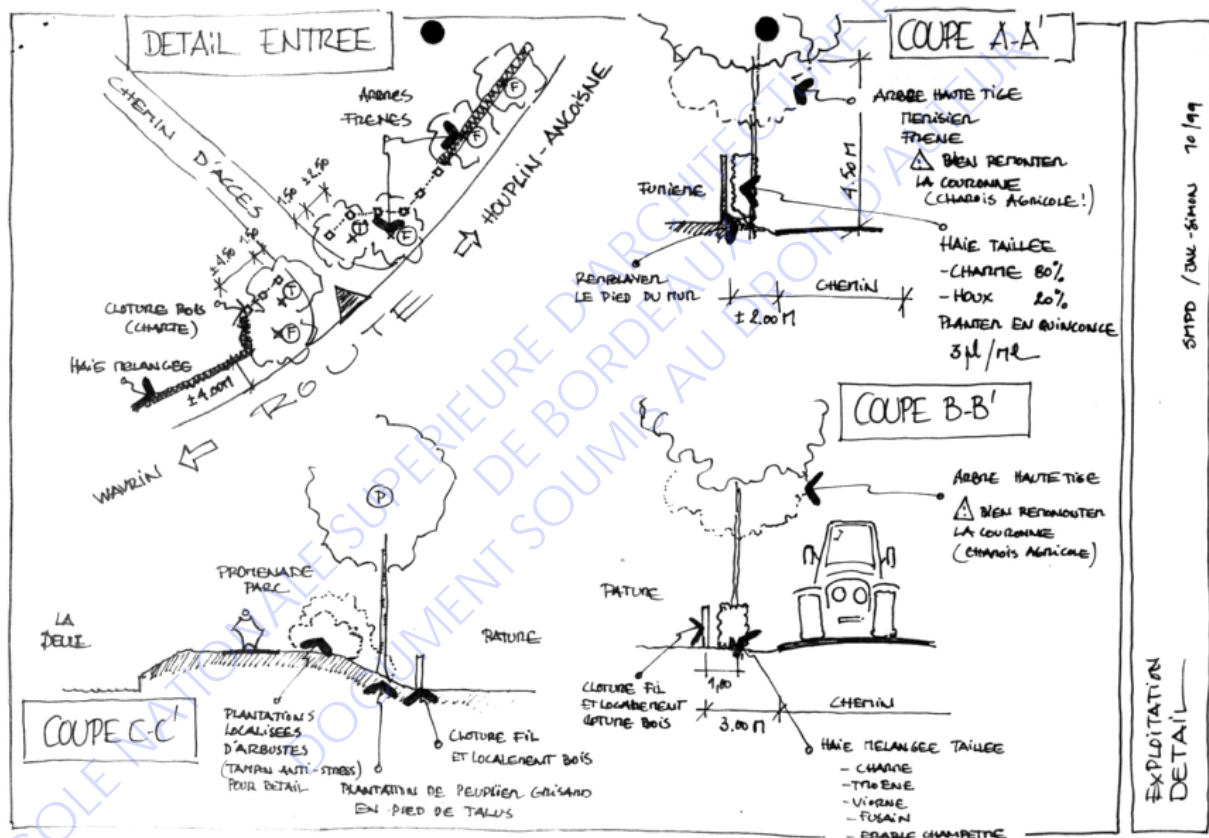 DETAIL ENTREE
CHEMIN D'ACCES
ARBRES
FRENES
HOUPLIN - ANCOISNE
F
F
F
F
1.50
±2.50
±4.50
1.50
CLOTURE BOIS
(CHARTE)
HAIE MELANGEE
±4.00M
ROUTE
WAVRIN
COUPE A-A'
ARBRE HAUTE TIGE
MERISIER
FRENE
BIEN REMONTER
LA COURONNE
(CHAROIS AGRICOLE!)
4.50 M
FUMIERE
REMBLAYER
LE PIED DU MUR
±2.00M
CHEMIN
HAIE TAILLEE
- CHARME 80%
- HOUX 20%
PLANTER EN QUINCONCE
3pl/Ml
COUPE B-B'
ARBRE HAUTE TIGE
BIEN REMONOUTER
LA COURONNE
(CHAROIS AGRICOLE)
PATURE
CLOTURE FIL
ET LOCALEMENT
CLOTURE BOIS
1,00
3.00M
CHEMIN
HAIE MELANGEE TAILLEE
- CHARME
- TROENE
- VIORNE
- FUSAIN
- ERABLE CHAMPETRE
P
PROMENADE
PARC
LA
DEULE
PATURE
COUPE C-C'
PLANTATIONS
LOCALISEES
D'ARBUSTES
(TAMPON ANTI-STRESS)
POUR BETAIL
CLOTURE FIL
ET LOCALEMENT BOIS
PLANTATION DE PEUPLIER GRISARD
EN PIED DE TALUS
SMPD / JAK-SIMON 10/99
EXPLOITATION
DETAIL
ECOLE NATIONALE SUPERIEURE D'ARCHITECTURE ET
DE BORDEAUX
DOCUMENT SOUMIS AU DROIT D'AUTEUR